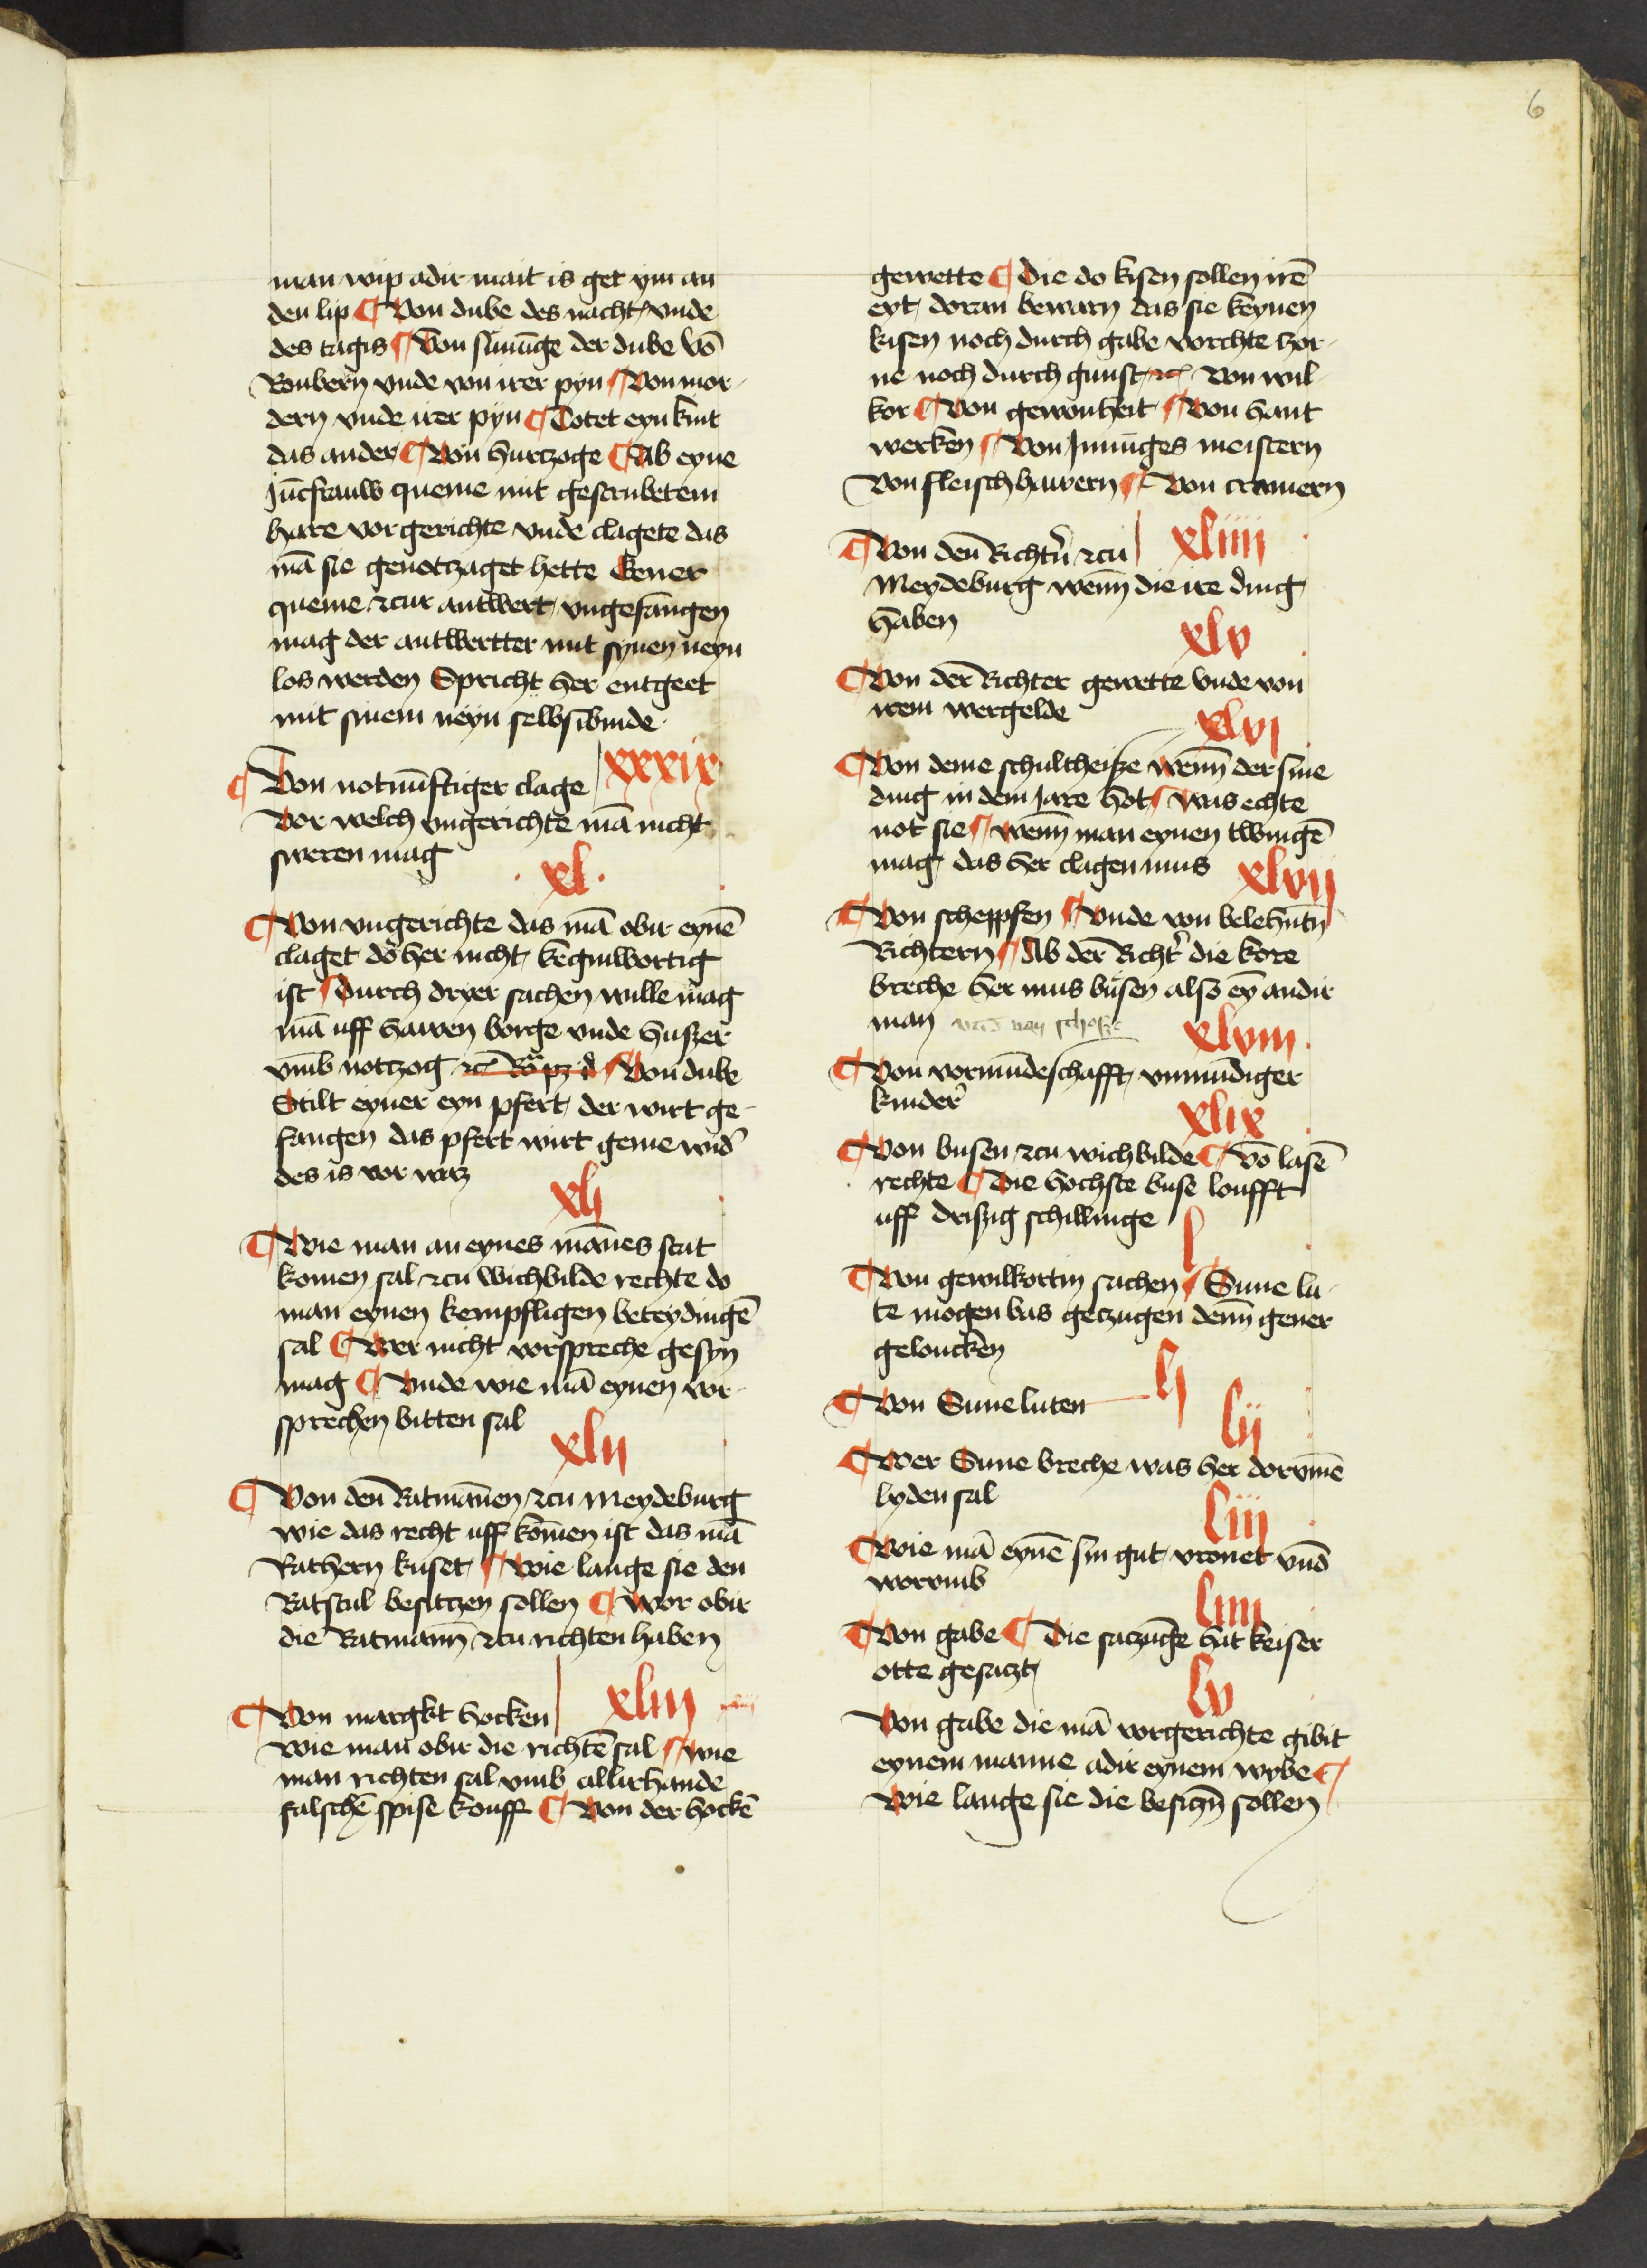 6
man wip adir mait is get ym an
den lip ¶ Von dube des nacht vnde
des tagis ¶ Von sūnūge der dube vō
Roubern vnde von irer pyn ¶ Von mor-
dern vnde irer pyn ¶ Totet eyn kint
das ander ¶ Von hurtzoge ¶ Ab eyne
Jūcfrauw queme mit gestrubetem
hare vor gerichte vnde clagete das
mā sie genotczaget hette Gener
queme czur antwert vngefangen
mag der antwertter mit synen neyn
los werden Spricht her entgeet
mit sinem neyn selbsibinde
xxxix
¶ Von notnūftiger clage
Vor welch vngerichte mā nicht
sweren mag
·xl·
¶ Von vngerichte das mā obir eynē
claget do her nicht keginwortig
ist ¶ Durch dryer sachen wille mag
mā uff hauwen borge vnde huszer
vmb notzog ¶ Von dube
Stilt eyner eyn pfert der wirt ge-
fangen das pfert wirt geme wid'
des is vor waz
xlj
¶ Wie man an eynes mānes stat
komen sal czu wichbilde rechte do
man eynen kempfligen beteydingē
sal ¶ Wer nicht vorspreche gesyn
mag ¶ Vnde wie mā eynen vor-
sprechen bitten sal
xlij
¶ Von den Ratmānen czu Meydeburg
wie das recht uff komen ist das mā
Rathern kuset ¶ Wie lange sie den
Ratstul besitczen sollen ¶ Wor obir
die Ratmann czu richten haben
xliij
¶ Von margkt hocken
wie man obir die richtē sal ¶ Wie
man richten sal vmb allirhande
falschē spise kouff ¶ Von der hockē
gewette ¶ Die do kisen sollen irē
eyt doran bewarn das sie keynen
kisen noch durch gabe vorchte zor-
ne noch durch gunst rc Von wil-
kor ¶ Von gewonheit ¶ Von hant
werken ¶ Von Innūges meistern
Von fleischhauwern ¶ Von cramern
xliiij
¶ Von den Richt'n czu
Meydeburg wenn die ire ding
haben
xlv
¶ Von der Richter gewette vnde von
irem wergelde
xlvj
¶ Von deme schultheisze wenn der sine
ding in dem Jare hot ¶ Was echte
not sie ¶ wenn man eynen twingē
mag das her clagen mus
xlvij
¶ Von scheppfen ¶ Vnde von belehntn
Richtern ¶ Ab der Richt' die kore
breche her mus busen also ey andir
man vnd von schosze
xlviij
¶ Von vormūdeschafft vnmūdiger
kinder
xlix
¶ Von busen czu wichbilde ¶ Vō lasē
rechte ¶ Die hochste buse loufft
uff driszig schillinge
l
¶ Von gewilkortin sachen ¶ Sune lu-
te mogen bas geczugen denn gener
geloucken
lj
¶ Von Suneluten
lij
¶ Wer Sune breche was her dorvmē
lyden sal
liij
¶ Wie mā eynē sin gut vronet vnd
worvmb
liiij
¶ Von gabe ¶ Die saczūge hat keiser
otte gesaczt
lv
Von gabe die mā vorgerichte gibit
eynem manne adir eynem wybe ¶
Wie lange sie die besiczn sollen